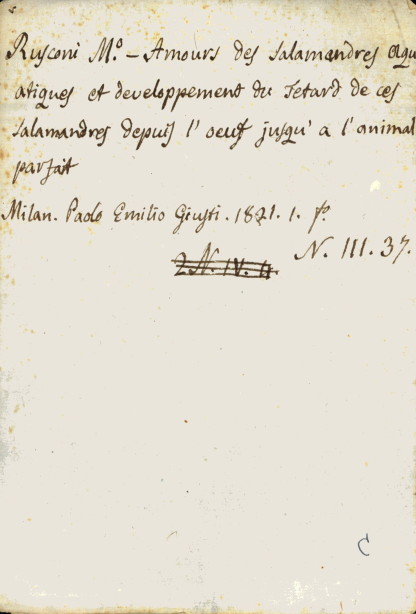 Rusconi M.º - Amours des salamandres aqu
atiques et developpement du Tetard de ces
salamandres depuis l' oeuf jusqu' a l' animal
parfait
Milan. Paolo Emilio Giusti. 1821. 1. fº.
N. III. 37.
2. N. IV. 4.
C